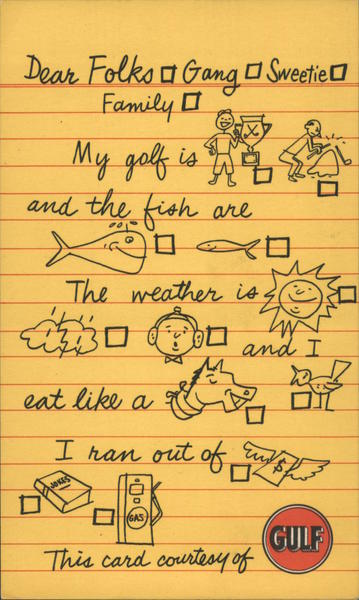 Dear Folks Gang Sweetie
Family
My golf is
and the fish are
The weather is
and I
eat like a
I ran out of
$
JOKES
GAS
This card courtesy of GULF